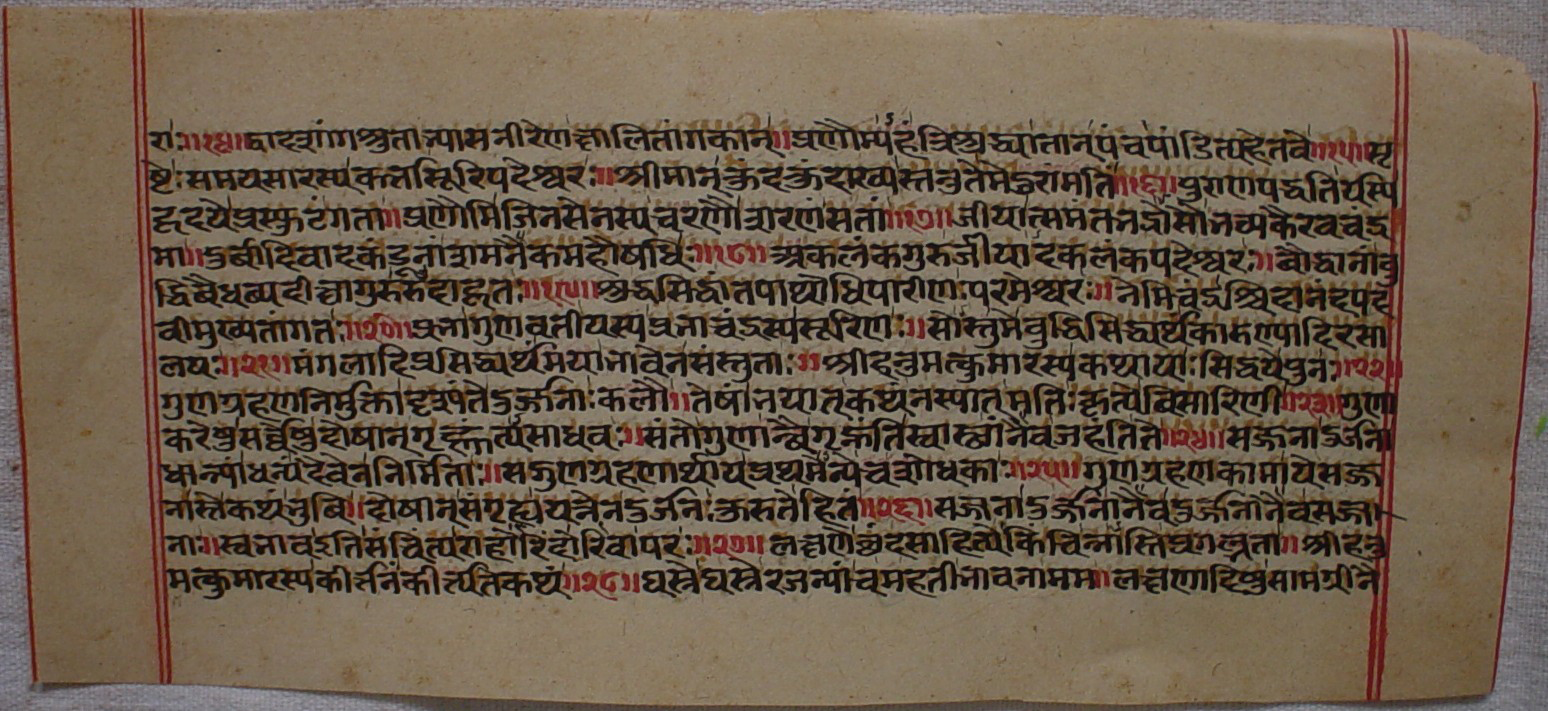 राः॥१४॥द्वादशांगश्रुताभ्यासनीरेणक्षालितांगकान्॥प्रणौम्यहंत्रिशुद्ध्यातान्पंचपांडित्यहेतवे॥१५॥सृ
ष्टेःसमयसारस्यकर्त्तासूरिपदेश्वरः॥श्रीमान्कुंदकुंदाख्यस्तनुतेमेदुरांमतिं॥१६॥पुराणपद्धतिर्यस्य
हृदयेप्रस्फुटंगता॥प्रणौमिजिनसेनस्यचरणौशरणंसतां॥१७॥जीयात्समंतभद्रोसौभव्यकैरवचंद्र
माः॥दुर्वादिवादकंडूनांशमनैकमहौषधिः॥१८॥अकलंकगुरुर्जीयादकलंकपदेश्वरः॥बौद्धानांबु
द्धिवैधव्यदीक्षागुरुरुदाहृतः॥१९॥शुद्धसिद्धांतपाथोधिपारीणःपरमेश्वरः॥नेमिचंद्रश्चिदानंदपद
वीमुख्यतांगतः॥२०॥प्रभागुणवतीयस्यप्रभाचंद्रस्यसूरिणः॥सोस्तुमेबुद्धिसिद्ध्यर्थंकारुण्यादिरसा
लयः॥२१॥मंगलादिप्रसिद्ध्यर्थंमयाभावेनसंस्तुताः॥श्रीहनुमत्कुमारस्यकथायाःसिद्धयेपुनः॥२२॥
गुणग्रहणनिर्मुक्तादृश्यंतेदुर्जनाःकलौ॥तेषांभयात्कथंनस्यात्मतिःकृत्येविसारिणी॥२३॥गुणा
करेषुसर्वेषुदोषान्गृह्णंत्यसाधवः॥संतोगुणान्वैगृह्णंतिस्वास्थांनैवजहतिते॥२४॥सज्जनादुर्जना
धात्र्यांधन्यंदैवेननिर्मिताः॥सद्गुणग्रहणार्थायप्रथमेन्येचशोधकाः॥२५॥गुणग्रहणकामायेसज्ज
नास्तैकथंभुवि॥दोषान्संगृह्ययत्नेनदुर्जनःकुरुतेहितं॥२६॥सज्जनादुर्ज्जनानैवदुर्ज्जनानैवसज्ज
नाः॥स्वभावइतिसंचिंत्यराहोरिंदोरिवापरः॥२७॥लक्षणेछंदसाहित्येकिंचिन्नास्तिप्रगल्भता॥श्रीहनु
मत्कुमारस्यकीर्त्तनंकीर्त्यतेकथं॥२८॥घस्रेघस्रेरजन्यांचमहतीभावनामम॥लक्षणादिषुसामग्रीनै